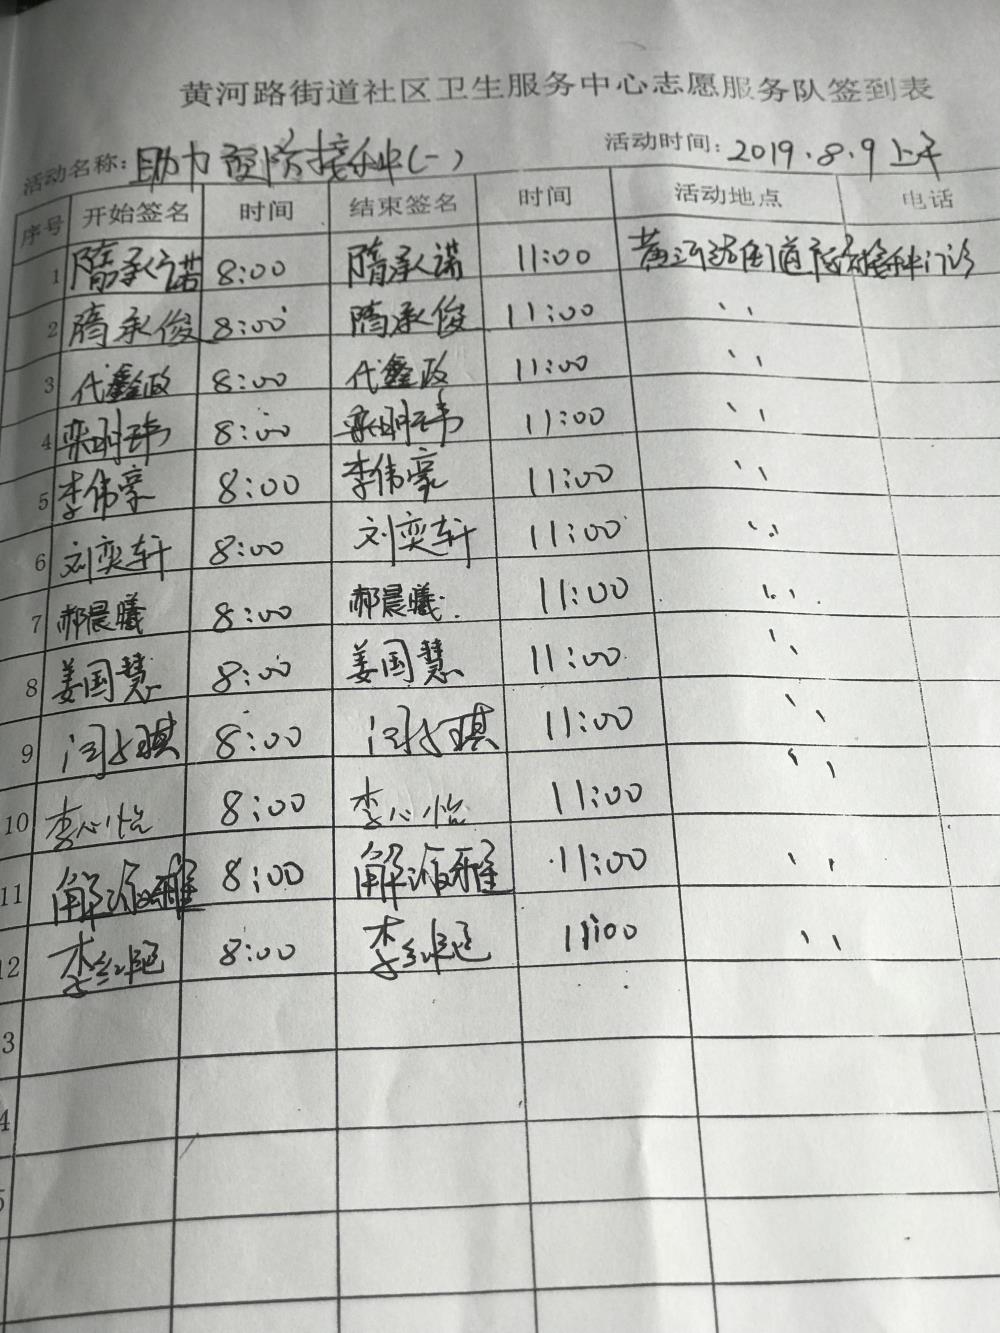 黄河路街道社区卫生服务中心志愿服务队签到表
活动名称：助力预防接种(一) 活动时间：2019.8.9上午
序号 开始签名 时间 结束签名 时间 活动地点 电话
1 隋承诺 8:00 隋承诺 11:00 黄河路街道预防接种门诊
2 隋承俊 8:00 隋承俊 11:00 〃
3 代鑫政 8:00 代鑫政 11:00 〃
4 栾明玮 8:00 栾明玮 11:00 〃
5 李伟豪 8:00 李伟豪 11:00 〃
6 刘奕轩 8:00 刘奕轩 11:00 〃
7 郝晨曦 8:00 郝晨曦 11:00 〃
8 姜国慧 8:00 姜国慧 11:00 〃
9 8:00 11:00 〃
10 李心怡 8:00 李心怡 11:00 〃
11 8:00 11:00 〃
12 8:00 11:00 〃
3
4
5